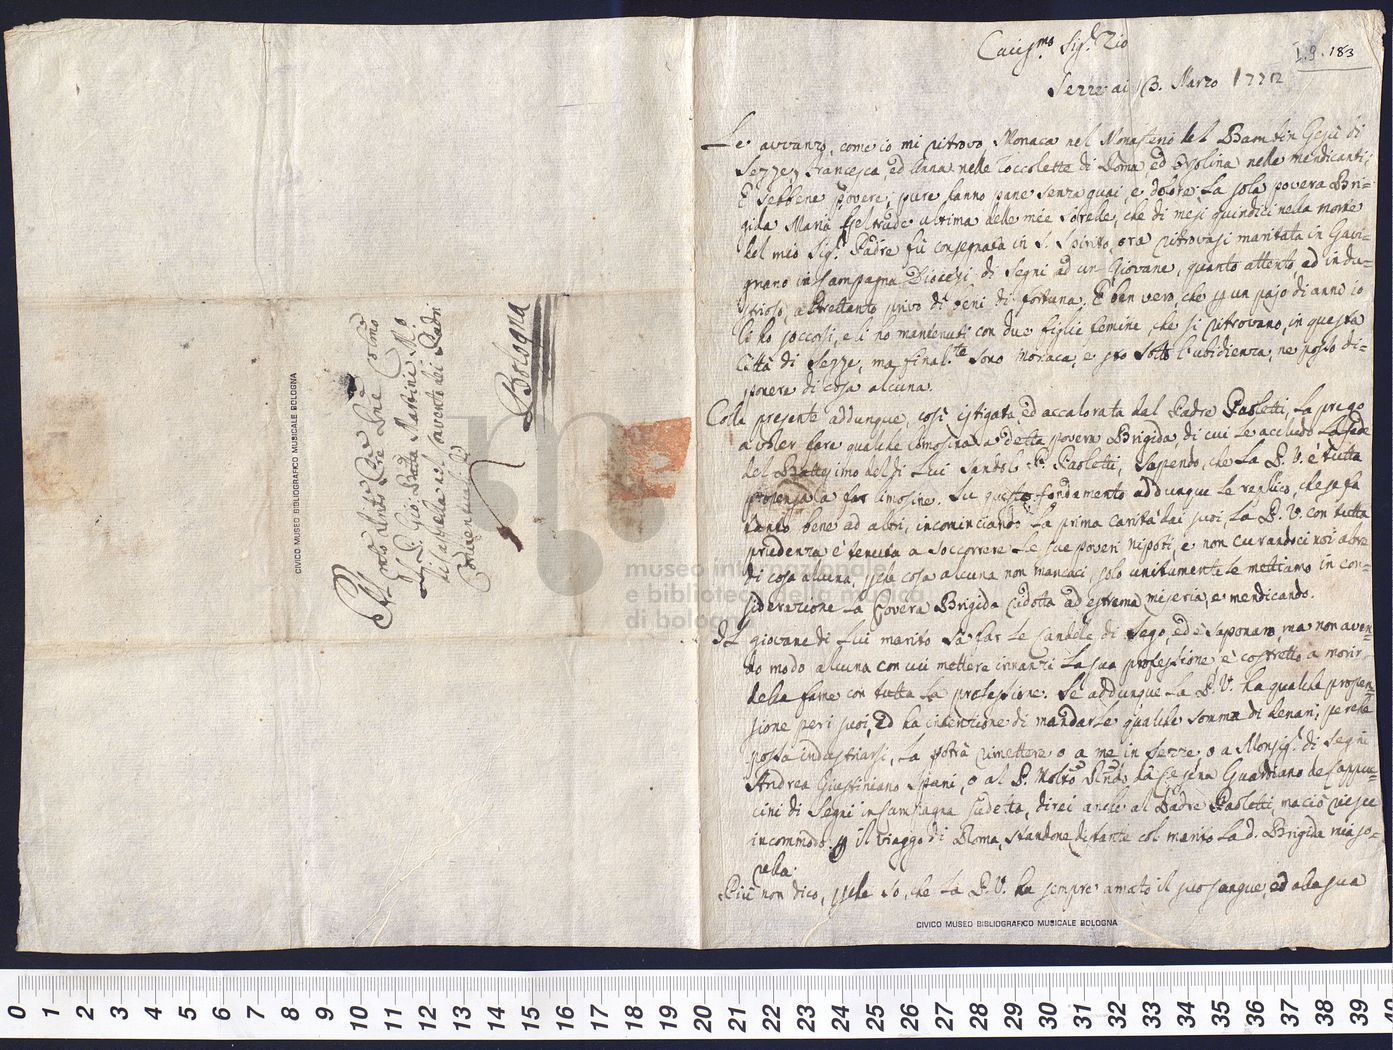 I.9.183
Cariss.mo Sig.r Zio
Sezze ai 13. Marzo 1772
Le avvanzo, come io mi ritrovo Monaca nel Monasterio del Bambin Gesù di
Sezze, Francesca, ed Anna nelle Zoccolette di Roma ed Orsolina nelle mendicanti;
E sebbene povere; pure fanno pane senza guai, e dolore. La sola povera Bri=
gida Maria Geltrude ultima delle mie sorelle, che di mesi quindici nella morte
del mio Sig.r Padre fù consegnata in S. Spirito, ora ritrovasi maritata in Gavi=
gnano in Campagna Diocesi di Segni ad un Giovane, quanto attento, ed indu=
strioso, altrettanto privo di beni di fortuna. È ben vero, che p un pajo di anni io
li ho soccorsi, e li ho mantenuti con due figlie femine, che si ritrovano, in questa
Città di Sezze, ma final.te sono monaca, e sto sotto l'ubidienza, ne posso di=
sponere di cosa alcuna.
Colla presente addunque, così istigata, ed accalorata dal Padre Paoletti, La prego
a voler fare qualche limosina a detta povera Brigida, di cui Le accludo La fede
del Battesimo del di Lui Santolo P. Paoletti, Sapendo, che La P. V. è tutta
propensa a far limosine. Su questo fondamento addunque Le replico, che si fa
tanto bene ad altri, incominciando La prima carità dai suoi, La P. V. con tutta
prudenza è tenuta a soccorrere Le sue poveri nipoti, e non curandoci noi altre
di cosa alcuna, p che cosa alcuna non mancaci, solo unitamente Le mettiamo in con=
siderazione La povera Brigida ridotta ad estrema miseria, e mendicando.
Il giovane di Lui marito Sà far Le Candele di Sego, ed è Saponaro, ma non aven=
do modo alcuno con cui mettere innanzi La sua professione, è costretto a morir
della fame con tutta La professione. Se addunque La P. V. ha qualche propen=
sione per i suoi, ed ha intenzione di mandarle qualche somma di denari, perche
possa industriarsi, La potrà rimettere o a me in Sezze o a Monsig.r di Segni
Andrea Giustiniano Spani, o al P. Molto Rndo da Cesena Guardiano de Cappuc=
cini di Segni in Campagna sudetta, direi anche al Padre Paoletti, ma ciò riesce
incommodo p il viaggo di Roma, standone distante col marito La d. Brigida mia so=
rella.
Più non dico, p che so, che La P. V. ha sempre amato il suo sangue, ed alla sua
Al
molto Rev.do Pre Pne Colmo
Il P. Gio: Batta Martini M.o
di Cappella nel Convento dei Padri
Conventuali di
Bologna
CIVICO MUSEO BIBLIOGRAFICO MUSICALE BOLOGNA
CIVICO MUSEO BIBLIOGRAFICO MUSICALE BOLOGNA
museo internazionale
e biblioteca della musica
di bologna
0 1 2 3 4 5 6 7 8 9 10 11 12 13 14 15 16 17 18 19 20 21 22 23 24 25 26 27 28 29 30 31 32 33 34 35 36 37 38 39 40